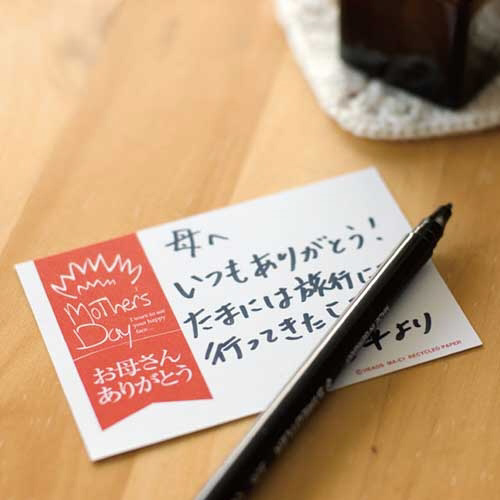 母へ
いつもありがとう!
たまには旅行に
行ってきた
より
Mother's
Day
I want to see
your happy
face
お母さん
ありがとう
©HEADS MA-C1 RECYCLED PAPER